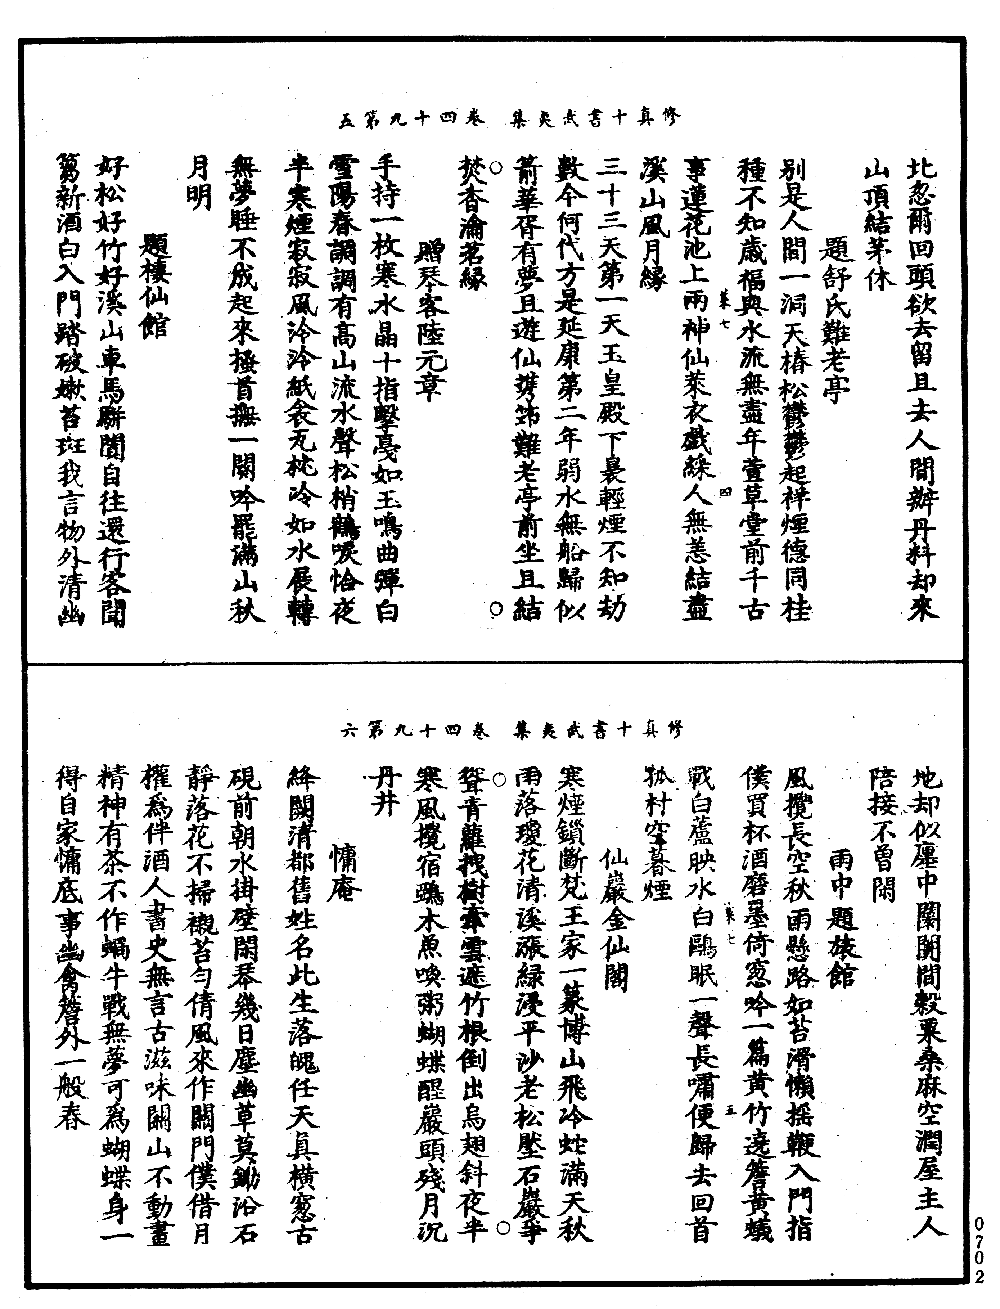 修真十書武夷集　卷四十九第五
北忽爾回頭欲去留且去人間辦丹料却來
山頂結茅休
題舒氏難老亭
別是人間一洞天椿松鬱鬱起祥煙德同桂
種不知歲福與水流無盡年萱草堂前千古
事蓮花池上兩神仙萊衣戲綵人無恙結盡
溪山風月緣
三十三天第一天玉皇殿下裊輕煙不知劫
數今何代方是延康第二年弱水無船歸似
箭華胥有夢且遊仙携筇難老亭前坐且結
焚香瀹茗緣
贈琴客陸元章
手持一枚寒水晶十指擊戛如玉鳴曲彈白
雪陽春調調有高山流水聲松梢鶴唳恰夜
半寒煙寂寂風泠泠紙衾瓦枕冷如水展轉
無夢睡不成起來搔首無一闋吟罷滿山秋
月明
題棲仙館
好松好竹好溪山車馬駢闐自往還行客聞
篘新酒白入門踏破嫩苔斑我言物外清幽
菜七
四
修真十書武夷集　卷四十九第六
地却似廛中闤闠間穀粟桑麻空潤屋主人
陪接不曽閑
雨中題旅館
風攪長空秋雨懸路如苔滑懶摇鞭入門指
僕買杯酒磨墨倚窓吟一篇黃竹遶簷黃蟻
戰白蘆映水白鷗眠一聲長嘯便歸去回首
孤村空暮煙
仙巖金仙閣
寒煙鎖斷梵王家一篆博山飛冷蛇滿天秋
雨落瓊花清溪漲緑浸平沙老松壓石巖爭
聳青蘿拽樹牽雲遮竹根倒出烏翅斜夜半
寒風攪宿鵶木魚喚粥蝴蝶醒巖頭殘月沉
丹井
慵庵
絳闕清都舊姓名此生落魄任天真橫窓古
硯前朝水掛壁閑琴幾日塵幽草莫鋤沿石
靜落花不掃襯苔勻倩風來作關門僕借月
權爲伴酒人書史無言古滋味關山不動畫
精神有茶不作蝸牛戰無夢可爲蝴蝶身一
得自家慵底事幽禽簷外一般春
菜七
五
0702